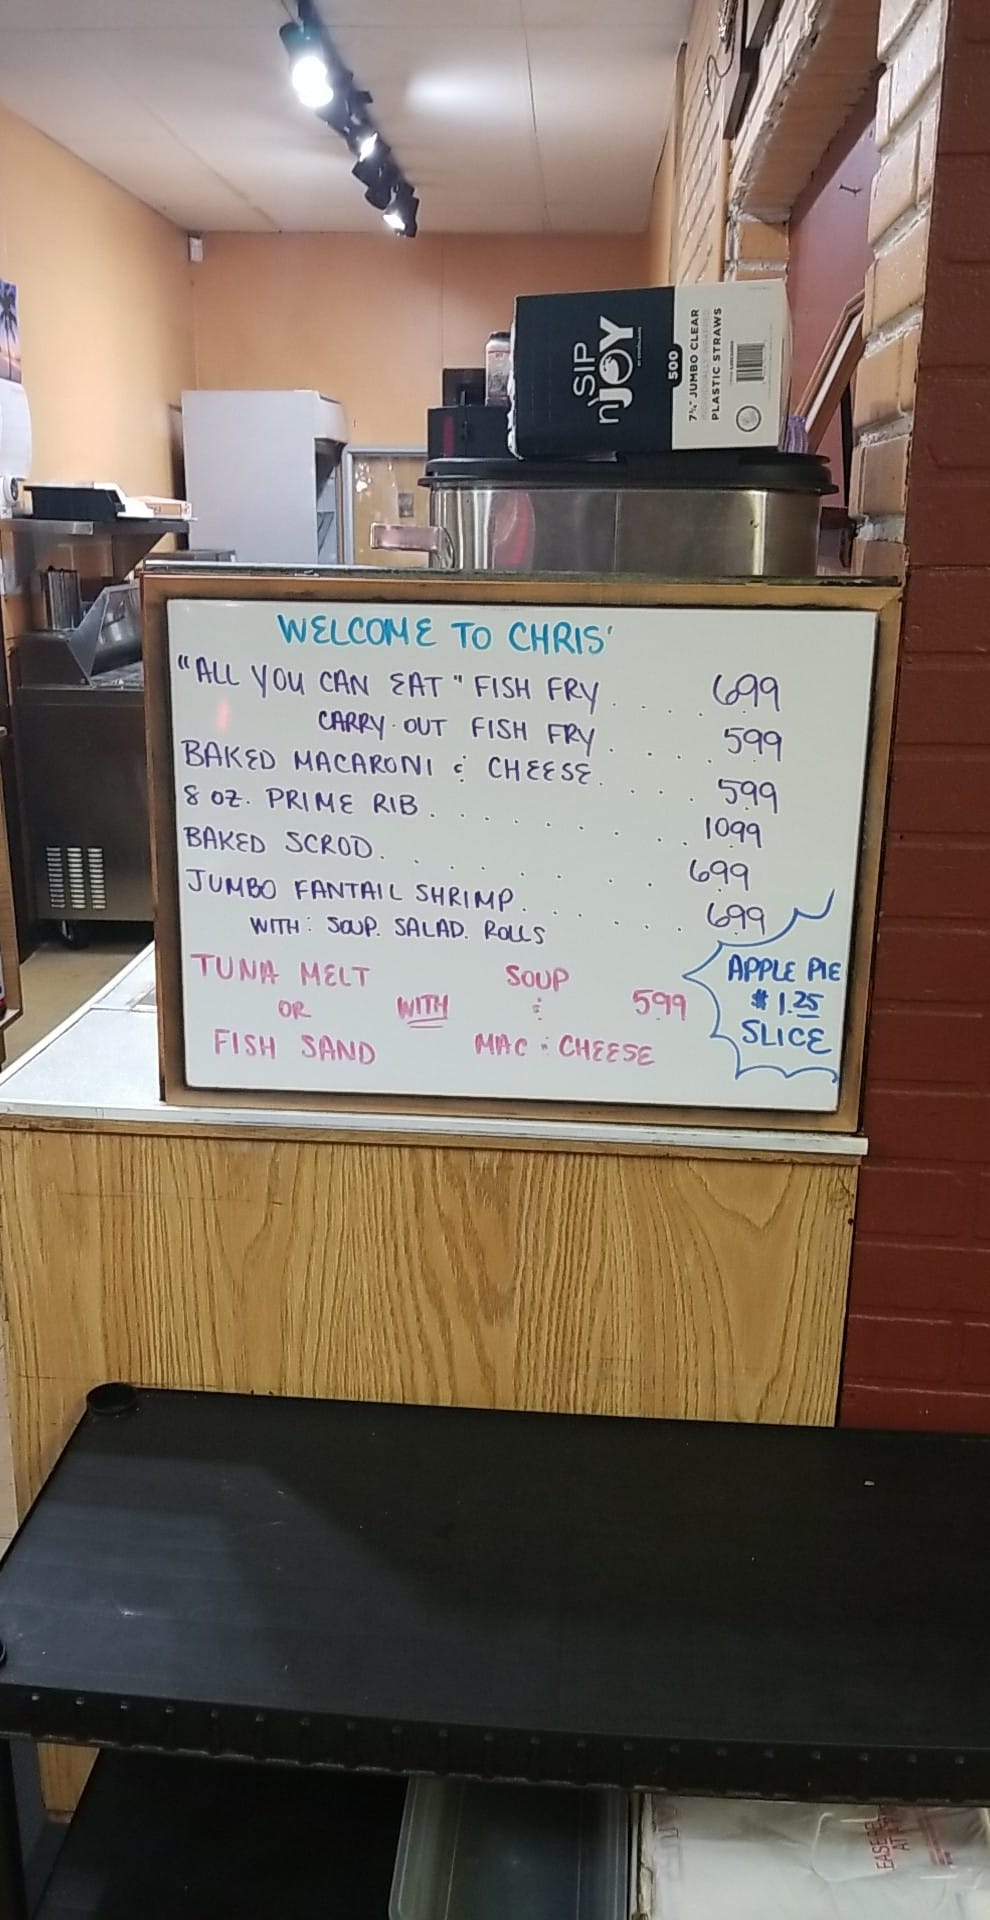 n'SIP
JOY
500
7¾" JUMBO CLEAR
PLASTIC STRAWS
WELCOME TO CHRIS'
"ALL YOU CAN EAT" FISH FRY . . . . 699
CARRY-OUT FISH FRY . . . . 599
BAKED MACARONI & CHEESE . . . . 599
8 OZ. PRIME RIB . . . . . . . 1099
BAKED SCROD . . . . . . . 699
JUMBO FANTAIL SHRIMP . . . . . . 699
WITH: SOUP. SALAD. ROLLS
TUNA MELT SOUP
OR WITH & 599
FISH SAND MAC & CHEESE
APPLE PIE
$1.25
SLICE